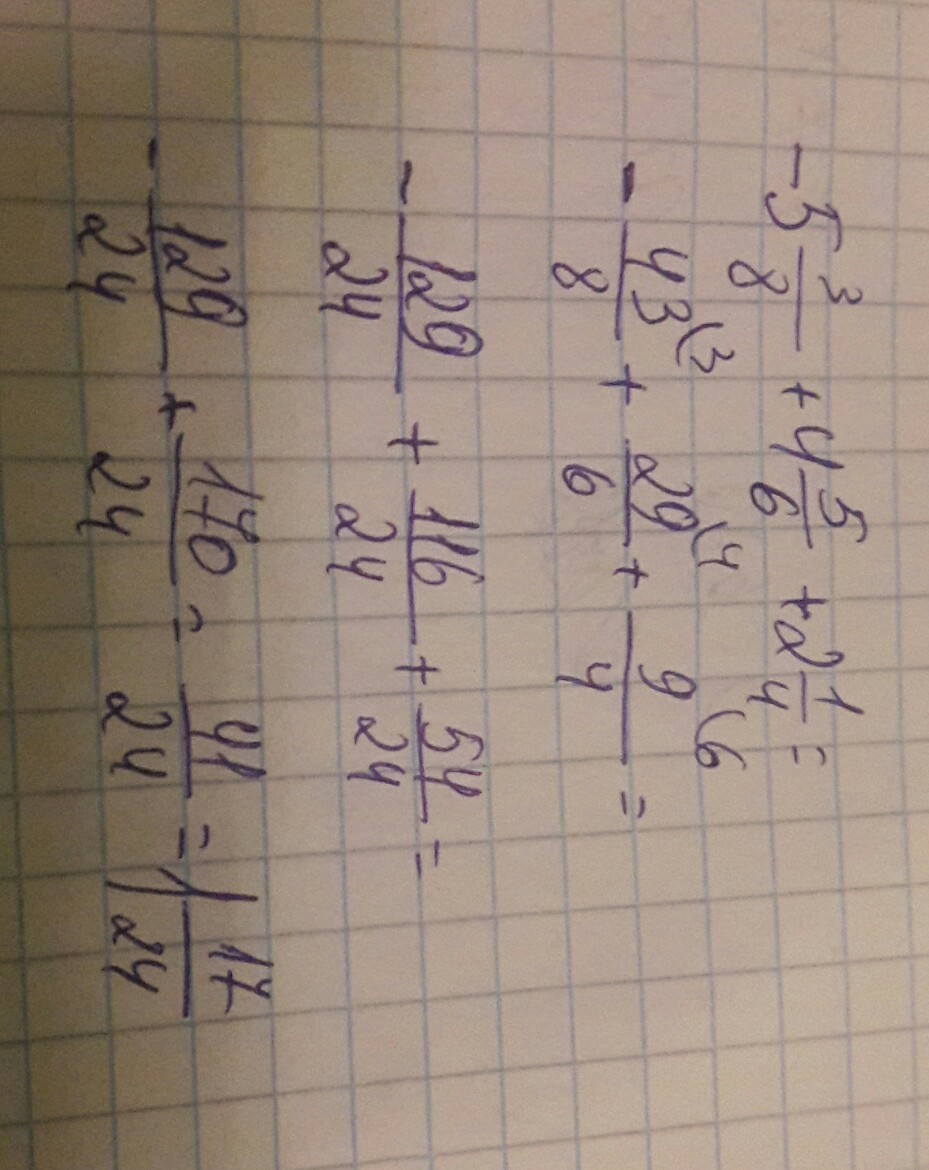 -5 3/8 + 4 5/6 + 2 1/4 =
- 43/8 (3 + 29/6 (4 + 9/4 (6 =
- 129/24 + 116/24 + 54/24 =
- 129/24 + 170/24 = 41/24 = 1 17/24